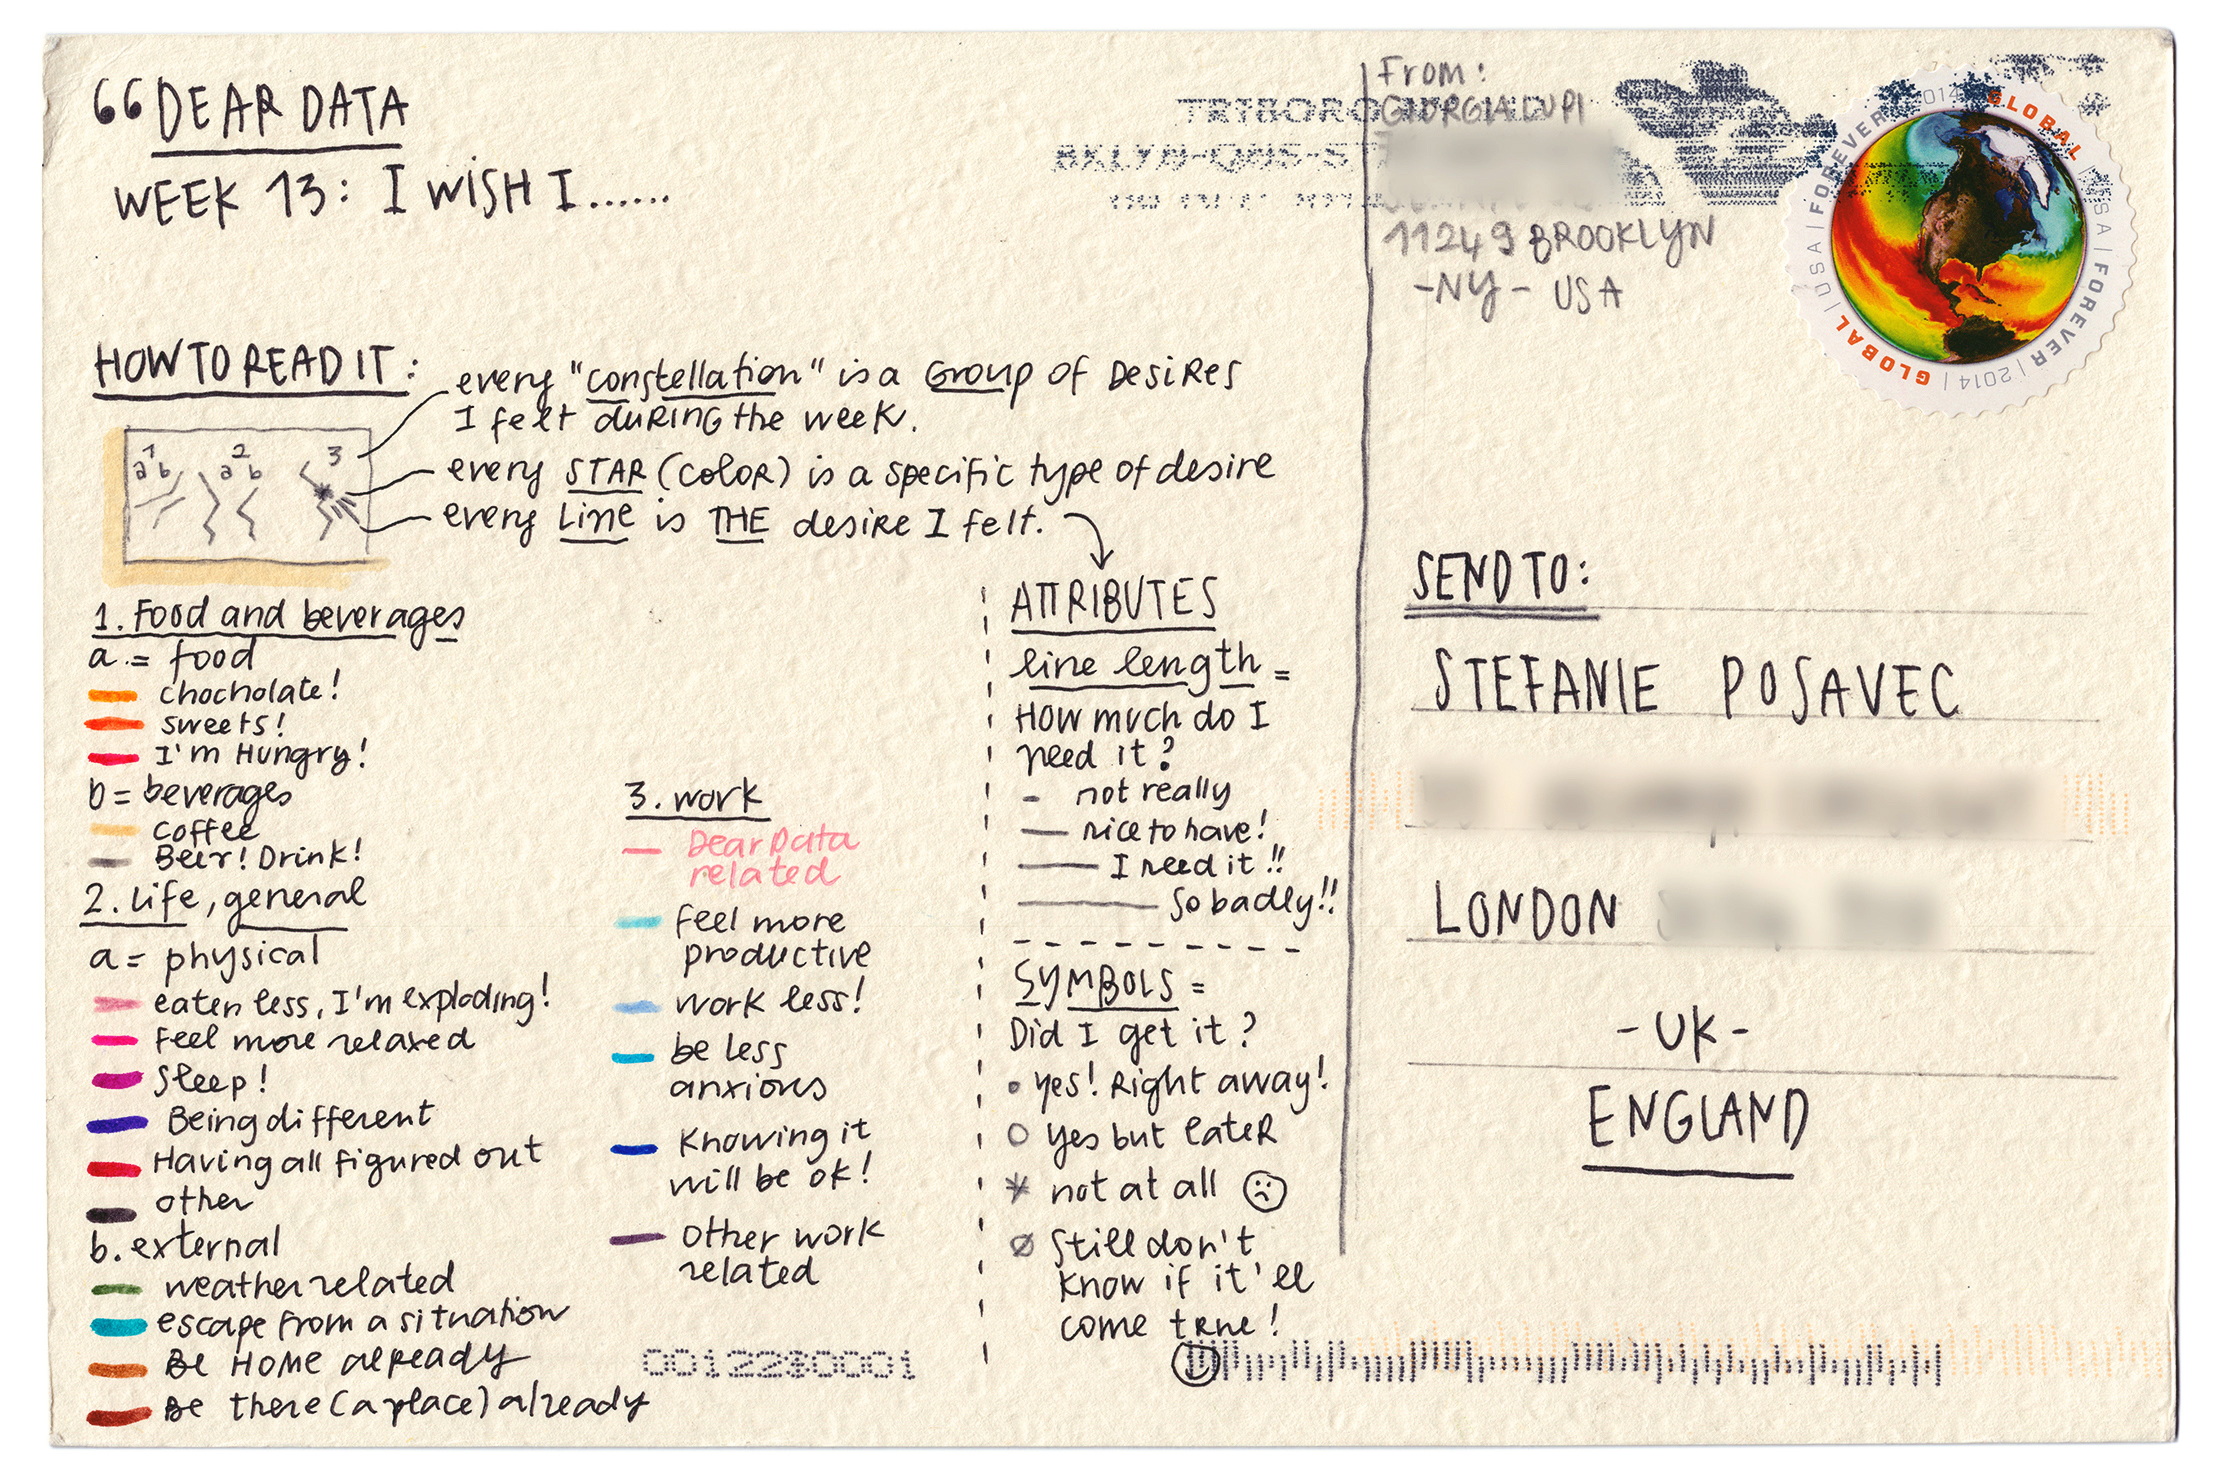 66 DEAR DATA
WEEK 13: I WISH I......
HOW TO READ IT:
every "constellation" is a GROUP OF DESIRES
I felt DURING the week.
every STAR (COLOR) is a specific type of desire
every Line is THE desiRE I felt.
1 a b
2 a b
3
1. Food and beverages
a. = food
chocholate!
sweets!
I'm Hungry!
b = beverages
coffee
Beer! Drink!
2. Life, general
a = physical
eaten less, I'm exploding!
Feel more relaxed
Sleep!
Being different
Having all figured out
other
b. external
weather related
escape from a situation
Be HOME alREADY
Be there (a place) already
3. work
Dear Data
related
Feel more
productive
work less!
be less
anxious
Knowing it
will be ok!
Other work
related
ATTRIBUTES
line length =
HOW much do I
need it?
not really
nice to have!
I need it!!
So badly!!
SYMBOLS =
Did I get it?
yes! Right away!
yes but lateR
not at all
Still don't
know if it'll
come true!
0012280001
From:
GIORGIA LUPI
11249 BROOKLYN
-NY- USA
TRIBORO
BKLYN-QNS-ST
GLOBAL | USA | FOREVER | 2014 | GLOBAL | USA | FOREVER | 2014
SEND TO:
STEFANIE POSAVEC
LONDON
-UK-
ENGLAND